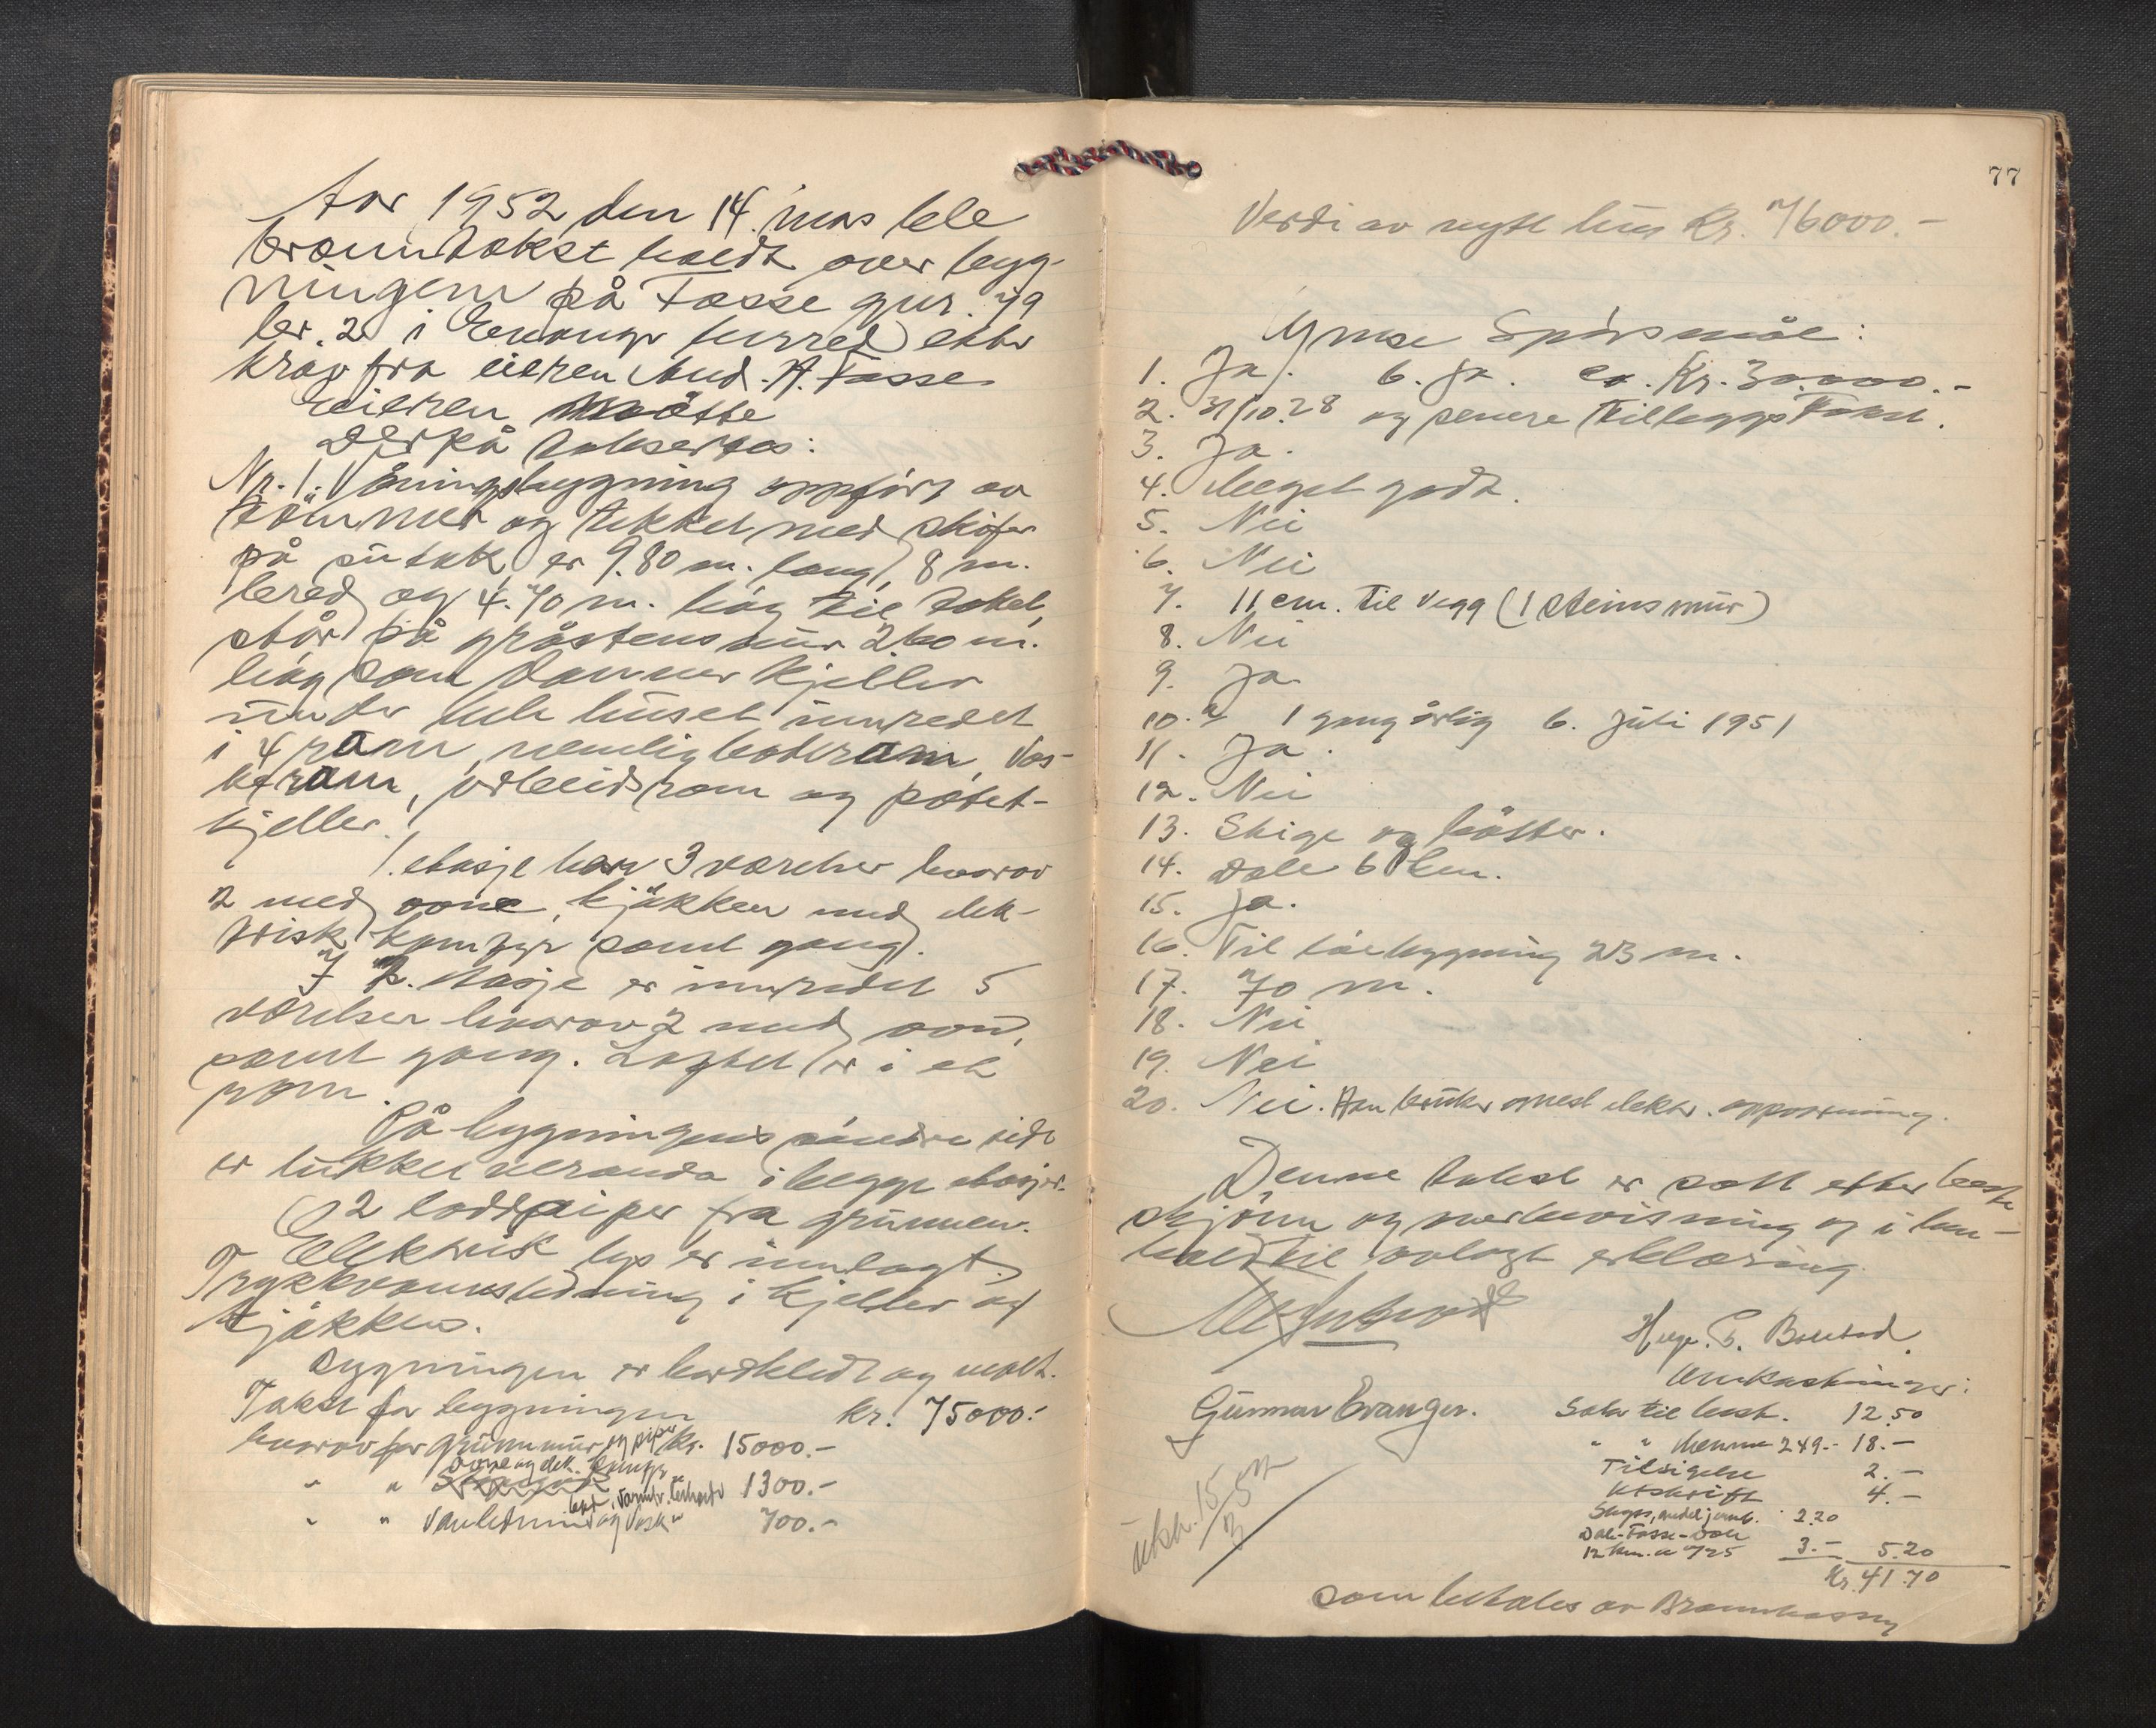 År 1952 den 14. mars ble
branntakst holdt over byg-
ningen på Fosse gnr. 79
br. 2 i Evanger herred etter
krav fra eieren And. A. Fosse
Eieren møtte
Derpå taksertes:
Nr. 1. Våningsbygning oppført av
tömmer og tekket med skifer
på sutak er 9.80 m. lang, 8 m.
bred og 4.70 m. høg til taket,
står på gråstensmur 2.60 m.
høg som danner kjeller
under hele huset innredet
i 4 rom, nemlig baderom, vas-
kerom, arbeidsrom og potet-
kjeller.
1. etasje har 3 værelser hvorav
2 med ovne, kjøkken med elek-
trisk komfyr samt gang.
I 2. etasje er innredet 5
værelser hvorav 2 med ovn,
samt gang. Loftet er i et
rom.
På bygningens søndre side
er lukket veranda i begge etasjer.
2 loddpiper fra grunnen.
Elektrisk lys er innlagt.
Trykkvannsledning i kjeller og
kjøkken.
Bygningen er bordkledt og malt.
Takst for bygningen kr. 75000.-
hvorav for grunnmur og piper kr. 15000.-
" " ovne og elek. komfyr " 1300.-
" " vanledning og vask " 700.-
77
Verdi av nytt hus kr. 76000.-
Ymse Spörsmål:
1. Ja. 6. Ja. ca. Kr. 30.000.-
2. 31/10.28 og senere Tilleggstakst.
3. Ja.
4. Meget godt.
5. Nei
6. Nei
7. 11 cm. til vegg (1 steins mur)
8. Nei
9. Ja.
10. 1 gang årlig 6. juli 1951
11. Ja.
12. Nei
13. Stige og bøtter.
14. Dale 6 km.
15. Ja.
16. Til løebygning 23 m.
17. 70 m.
18. Nei
19. Nei
20. Nei. Han bruker mest elektr. oppvarming.
Denne takst er satt etter beste
skjønn og overbevisning og i hen-
hold til avlagt erklæring.
Helge B. Bolstad.
Gunnar Evanger.
Omkostninger:
Salær til best. 12.50
" " menn 249.- 18.-
Tilsigelse 2.-
Utskrift 4.-
Skyss, andel jernb. 2.20
Dale-Fosse-Dale
12 km. a 0/25 3.- 5.20
Kr. 41.70
utskr. 15/3 52
som betales av Brannkassen